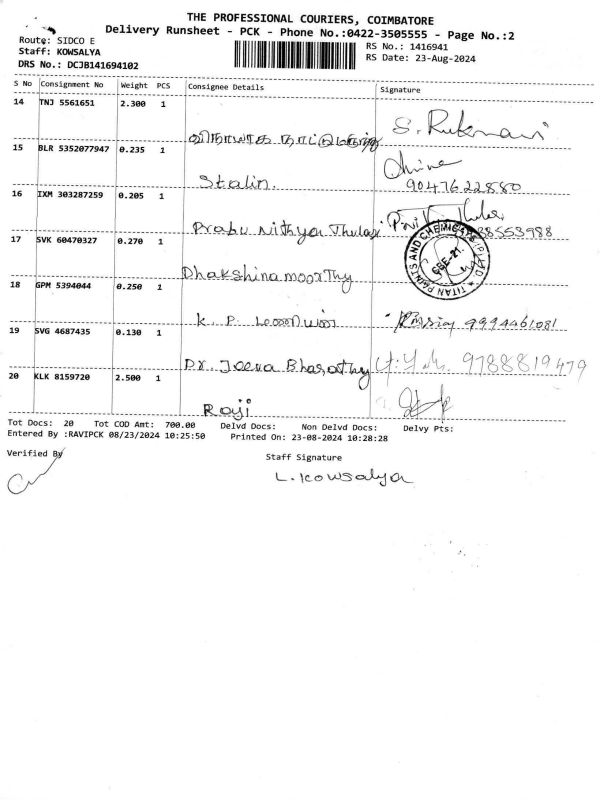 THE PROFESSIONAL COURIERS, COIMBATORE
Delivery Runsheet - PCK - Phone No.:0422-3505555 - Page No.:2
Route: SIDCO E
Staff: KOWSALYA
DRS No.: DCJB141694102
RS No.: 1416941
RS Date: 23-Aug-2024
S No Consignment No Weight PCS Consignee Details Signature
14 TNJ 5561651 2.300 1
விநாயகா நாட்டுமருந்து S. Rukmani
15 BLR 5352077947 0.235 1
Stalin. 9047622880
16 IXM 303287259 0.205 1
Prabu Nithya Thulasi
17 SVK 60470327 0.270 1
TITAN PAINTS AND CHEMICALS (P) LTD
CBE-21.
Dhakshinamoorthy
18 GPM 5394044 0.250 1
K. P. 9994461081
19 SVG 4687435 0.130 1
Dr. Jeeva Bharathy 9788819479
20 KLK 8159720 2.500 1
Roji
Tot Docs: 20 Tot COD Amt: 700.00 Delvd Docs: Non Delvd Docs: Delvy Pts:
Entered By :RAVIPCK 08/23/2024 10:25:50 Printed On: 23-08-2024 10:28:28
Verified By Staff Signature
L. Kowsalya